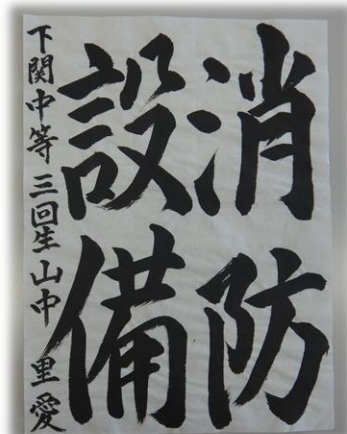 消防
設備
下関中等三回生山中里愛